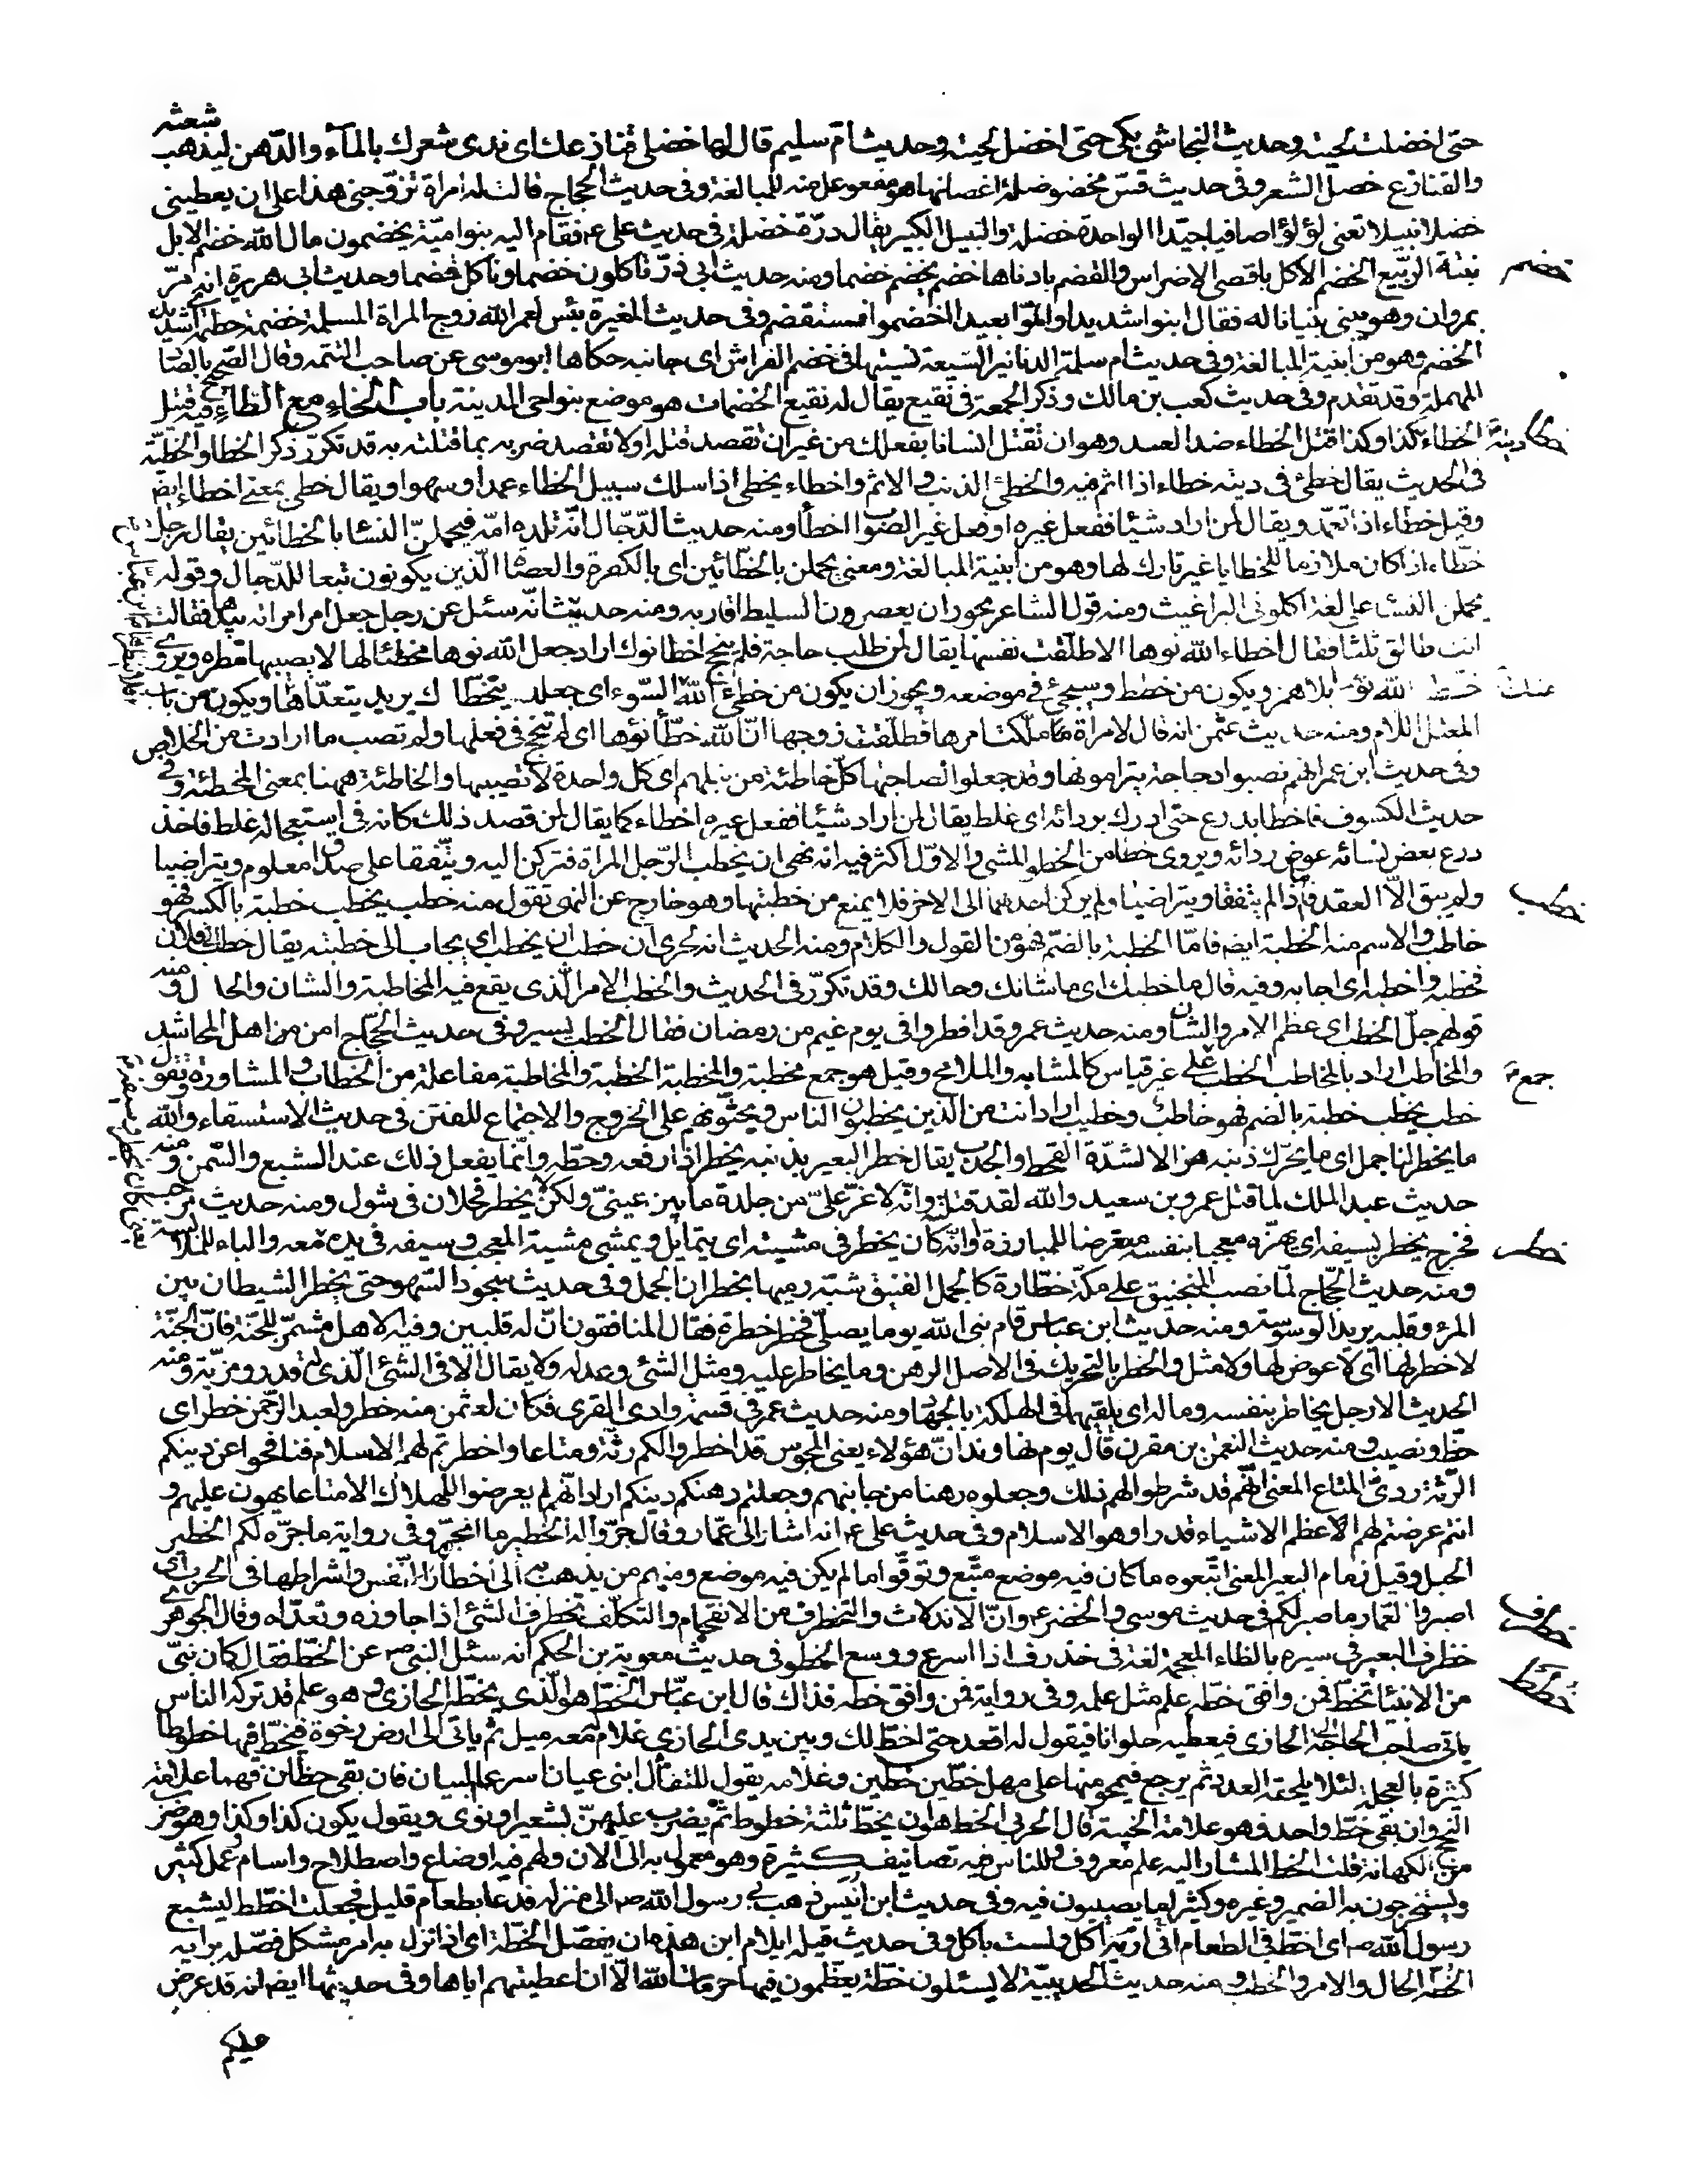 حتى اخضلت لحيته وحديث النجاشي بكى حتى اخضل لحيته وحديث ام سليم قال لها خضلى قنازعك اى ندى شعرك بالماء والدهن ليذهب شعثه
والقنازع خصل الشعر وفى حديث قس مخضوضلة اغصانها هو مفعوعل منه للمبالغة وفى حديث الحجاج قالت له امراة تزوجنى هذا على ان يعطينى
خضلا نبيلا تعنى لؤلؤا صافيا جيدا الواحدة خضلة والنبيل الكبير يقال درة خضلة فى حديث على ع فقام اليه بنوامية يخضمون مال الله خضم الابل
خضم
نبتة الربيع الخضم الاكل باقصى الاضراس والقضم بادناها خضم يخضم خضما ومنه حديث ابى ذر تاكلون خضما وناكل قضما وحديث ابى هريرة انه مر
بمروان وهو يبنى بنيانا له فقال ابنوا شديدا واملوا بعيدا اخضموا فسنقضم وفى حديث المغيرة بئس لعمر الله زوج المراة المسلمة خضمة حطمة اى شديد
الخضم وهو من ابنية المبالغة وفى حديث ام سلمة الدنانير السبعة نسيتها فى خضم الفراش اى جانبه حكاها ابو موسى عن صاحب التتمه وقال الصحيح بالصاد
المهملة وقد تقدم وفى حديث كعب بن مالك وذكر الجمعة فى نقيع يقال له نقيع الخضمات هو موضع بنواحى المدينة باب الخاء مع الطاء فيه قتيل
خطا
الخطاء ديته كذا وكذا قتل الخطاء ضد العمد وهو ان تقتل انسانا بفعلك من غير ان تقصد قتله او لا تقصد ضربه بما قتلته به قد تكرر ذكر الخطا والخطيئة
فى الحديث يقال خطئ فى دينه خطاء اذا اثم فيه والخطئ الذنب والاثم واخطاء يخطئ اذا سلك سبيل الخطاء عمدا وسهوا ويقال خطى بمعنى اخطاء ايض
وقيل خطاء اذا تعمد ويقال لمن اراد شيئا ففعل غيره او فعل غير الصواب اخطا ومنه حديث الدجال انه تلده امه فيحملن النساء بالخطائين يقال رجل
خطاء اذا كان ملازما للخطايا غير تارك لها وهو من ابنية المبالغة ومعنى يحملن بالخطائين اى بالكفرة والعصاة الذين يكونون تبعا للدجال وقوله
يحملن النساء على لغة اكلونى البراغيث ومنه قول الشاعر بحوران يعصرون السليط اقاربه ومنه حديث انه سئل عن رجل جعل امر امراته بيدها فقالت
انت طالق ثلثا فقال اخطاء الله نوها الا طلقت نفسها يقال لمن طلب حاجة فلم ينجح اخطا نوءك اراد جعل الله نوها مخطئا لها لا يصيبها مطره ويروى
الله نوها بلا همز ويكون من خطط وسيجئ فى موضعه ويجوز ان يكون من خطى الله السوء اى جعله يتخطاك يريد يتعداها ويكون من باب
المعتل اللام ومنه حديث عثمن انه قال لامراة ملكت امرها فطلقت زوجها ان الله خطا نوها اى لم تنجح فى فعلها ولم تصب ما ارادت من الخلاص
وفى حديث ابن عمر انهم نصبوا دجاجة يترامونها وقد جعلوا لصاحبها كل خاطئة من نبلهم اى كل واحدة لا تصيبها والخاطئة ههنا بمعنى المخطئة وفى
حديث الكسوف فاخطا بدرع حتى ادرك بردائه اى غلط يقال لمن اراد شيئا ففعل غيره اخطاء كما يقال لمن قصد ذلك كانه فى استعجاله غلط فاخذ
درع بعض نسائه عوض ردائه ويروى خطا من الخطو المشى والاول اكثر فيه انه نهى ان يخطب الرجل المراة فتركن اليه ويتفقا على صداق معلوم ويتراضيا
خطب
ولم يبق الا العقد فاما اذا لم يتفقا ويتراضيا ولم يركن احدهما الى الاخر فلا يمنع من خطبتها وهو خارج عن النهى تقول منه خطب يخطب خطبة بالكسر فهو
خاطب والاسم منه الخطبة ايضا فاما الخطبة بالضم فهو من القول والكلام ومنه الحديث انه لحرى ان خطب ان يخطب اى يجاب الى خطبته يقال خطب الى فلان
فخطبه واخطبه اى اجابه وفيه قال ما خطبك اى ما شانك وحالك وقد تكرر فى الحديث والخطب الامر الذى يقع فيه المخاطبة والشان والحال ومنه
قولهم جل الخطب اى عظم الامر والشان ومنه حديث عمر وقد افطروا فى يوم غيم من رمضان فقال الخطب يسير وفى حديث الحجاج امن من اهل المحاشد
والمخاطب اراد بالمخاطب الخطب جمع على غير قياس كالمشابه والملامح وقيل هو جمع مخطبة والمخطبة الخطبة والمخاطبة مفاعلة من الخطاب والمشاورة تقول
خطب يخطب خطبة بالضم فهو خاطب وخطيب اراد انت من الذين يخطبون الناس ويحثونهم على الخروج والاجتماع للفتن فى حديث الاستسقاء والله
ما يخطر لنا جمل اى ما يحرك ذنبه هزالا لشدة القحط والجدب يقال خطر البعير بذنبه يخطر اذا رفعه وحطه وانما يفعل ذلك عند الشبع والسمن ومنه
حديث عبد الملك لما قتل عمرو بن سعيد والله لقد قتلته وانه لاعز على من جلدة ما بين عينى ولكن لا يخطر فحلان فى شول ومنه حديث مرحب
خطر
فخرج يخطر بسيفه اى يهزه معجبا بنفسه متعرضا للمبارزة او انه كان يخطر فى مشيته اى يتمايل ويمشى مشية المعجب وسيفه فى يده معه والباء للملابسة
ومنه حديث الحجاج لما نصب المنجنيق على مكة خطارة كالجمل الفنيق شبه رميها بخطران الجمل وفى حديث سجود السهو حتى يخطر الشيطان بين
المرء وقلبه يريد الوسوسة ومنه حديث ابن عباس قام نبى الله يوما يصلى فخطر خطرة فقال المنافقون ان له قلبين وفيه الا هل مشمر للجنة فان الجنة
لا خطر لها اى لا عوض لها ولا مثل والخطر بالتحريك فى الاصل الرهن وما يخاطر عليه ومثل الشئ وعدله ولا يقال الا فى الشئ الذى له قدر ومزية ومنه
الحديث الا رجل يخاطر بنفسه وماله اى يلقيهما فى الهلكة بالجهاد ومنه حديث عمر فى قسمة وادى القرى فكان لعثمن منه خطر ولعبد الرحمن خطر اى
حظ ونصيب ومنه حديث النعمن بن مقرن قال يوم نهاوند ان هؤلاء يعنى المجوس قد اخطروا لكم رثة ومتاعا واخطرتم لهم الاسلام فنافحوا عن دينكم
الرثة ردى المتاع المعنى انهم قد شرطوا لهم ذلك وجعلوه رهنا من جانبهم وجعلتم رهنكم دينكم اراد انهم لم يعرضوا للهلاك الا متاعا يهون عليهم و
انتم عرضتم لهم الاعظم الاشياء قدرا وهو الاسلام وفى حديث على ع انه اشار الى عمار وقال جروا له الخطير ما انجر وفى رواية ما جره لكم الخطير
الحبل وقيل زمام البعير المعنى اتبعوه ما كان فيه موضع متبع وتوقوا ما لم يكن فيه موضع ومنهم من يذهب به الى اخطار النفس واشراطها فى الحرب اى
خطرف
اصبروا لعمار ما صبر لكم فى حديث موسى والخضر ع وان الاندلاث والتخطرف من الانقحام والتكلف تخطرف الشئ اذا جاوزه وتعداه وقال الجوهرى
خظرف البعير فى سيره بالظاء المعجمة لغة فى خذرف اذا اسرع ووسع الخطو فى حديث معوية بن الحكم انه سئل النبى ص عن الخط فقال كان نبى
خطط
من الانبياء يخط فمن وافق خطه علم مثل علمه وفى رواية فمن وافق خطه فذاك قال ابن عباس الخط هو الذى يخطه الحازى وهو علم قد تركه الناس
ياتى صاحب الحاجة الى الحازى فيعطيه حلوانا فيقول له اقعد حتى اخط لك وبين يدى الحازى غلام له معه ميل ثم ياتى الى ارض رخوة فيخط فيها خطوطا
كثيرة بالعجلة لئلا يلحقه العدد ثم يرجع فيمحو منها على مهل خطين خطين وغلامه يقول للتفأل ابنى عيان اسرعا البيان فان بقى خطان فهما علامة
النجح وان بقى خط واحد فهو علامة الخيبة قال الحربى الخط هو ان يخط ثلثة خطوط ثم يضرب عليهن بشعير او نوى ويقول يكون كذا وكذا وهو ضرب
من الكهانة قلت الخط المشار اليه علم معروف وللناس فيه تصانيف كثيرة وهو معمول به الى الان ولهم فيه اوضاع واصطلاح واسام وعمل كثير
ويستخرجون به الضمير وغيره وكثيرا ما يصيبون فيه وفى حديث ابن انيس ذهب بى رسول الله ص الى منزله فدعا بطعام قليل فجعلت اخطط ليشبع
رسول الله ص اى اخط فى الطعام انى اريه اكل ولست باكل وفى حديث قيلة ايلام ابن هذه ان يفصل الخطة اى اذا نزل به امر مشكل فصله برايه
الخطة الحال والامر والخطب ومنه حديث الحديبية لا يسئلون خطة يعظمون فيها حرمات الله الا ان اعطيتهم اياها وفى حديثها ايض انه قد عرض
عليكم